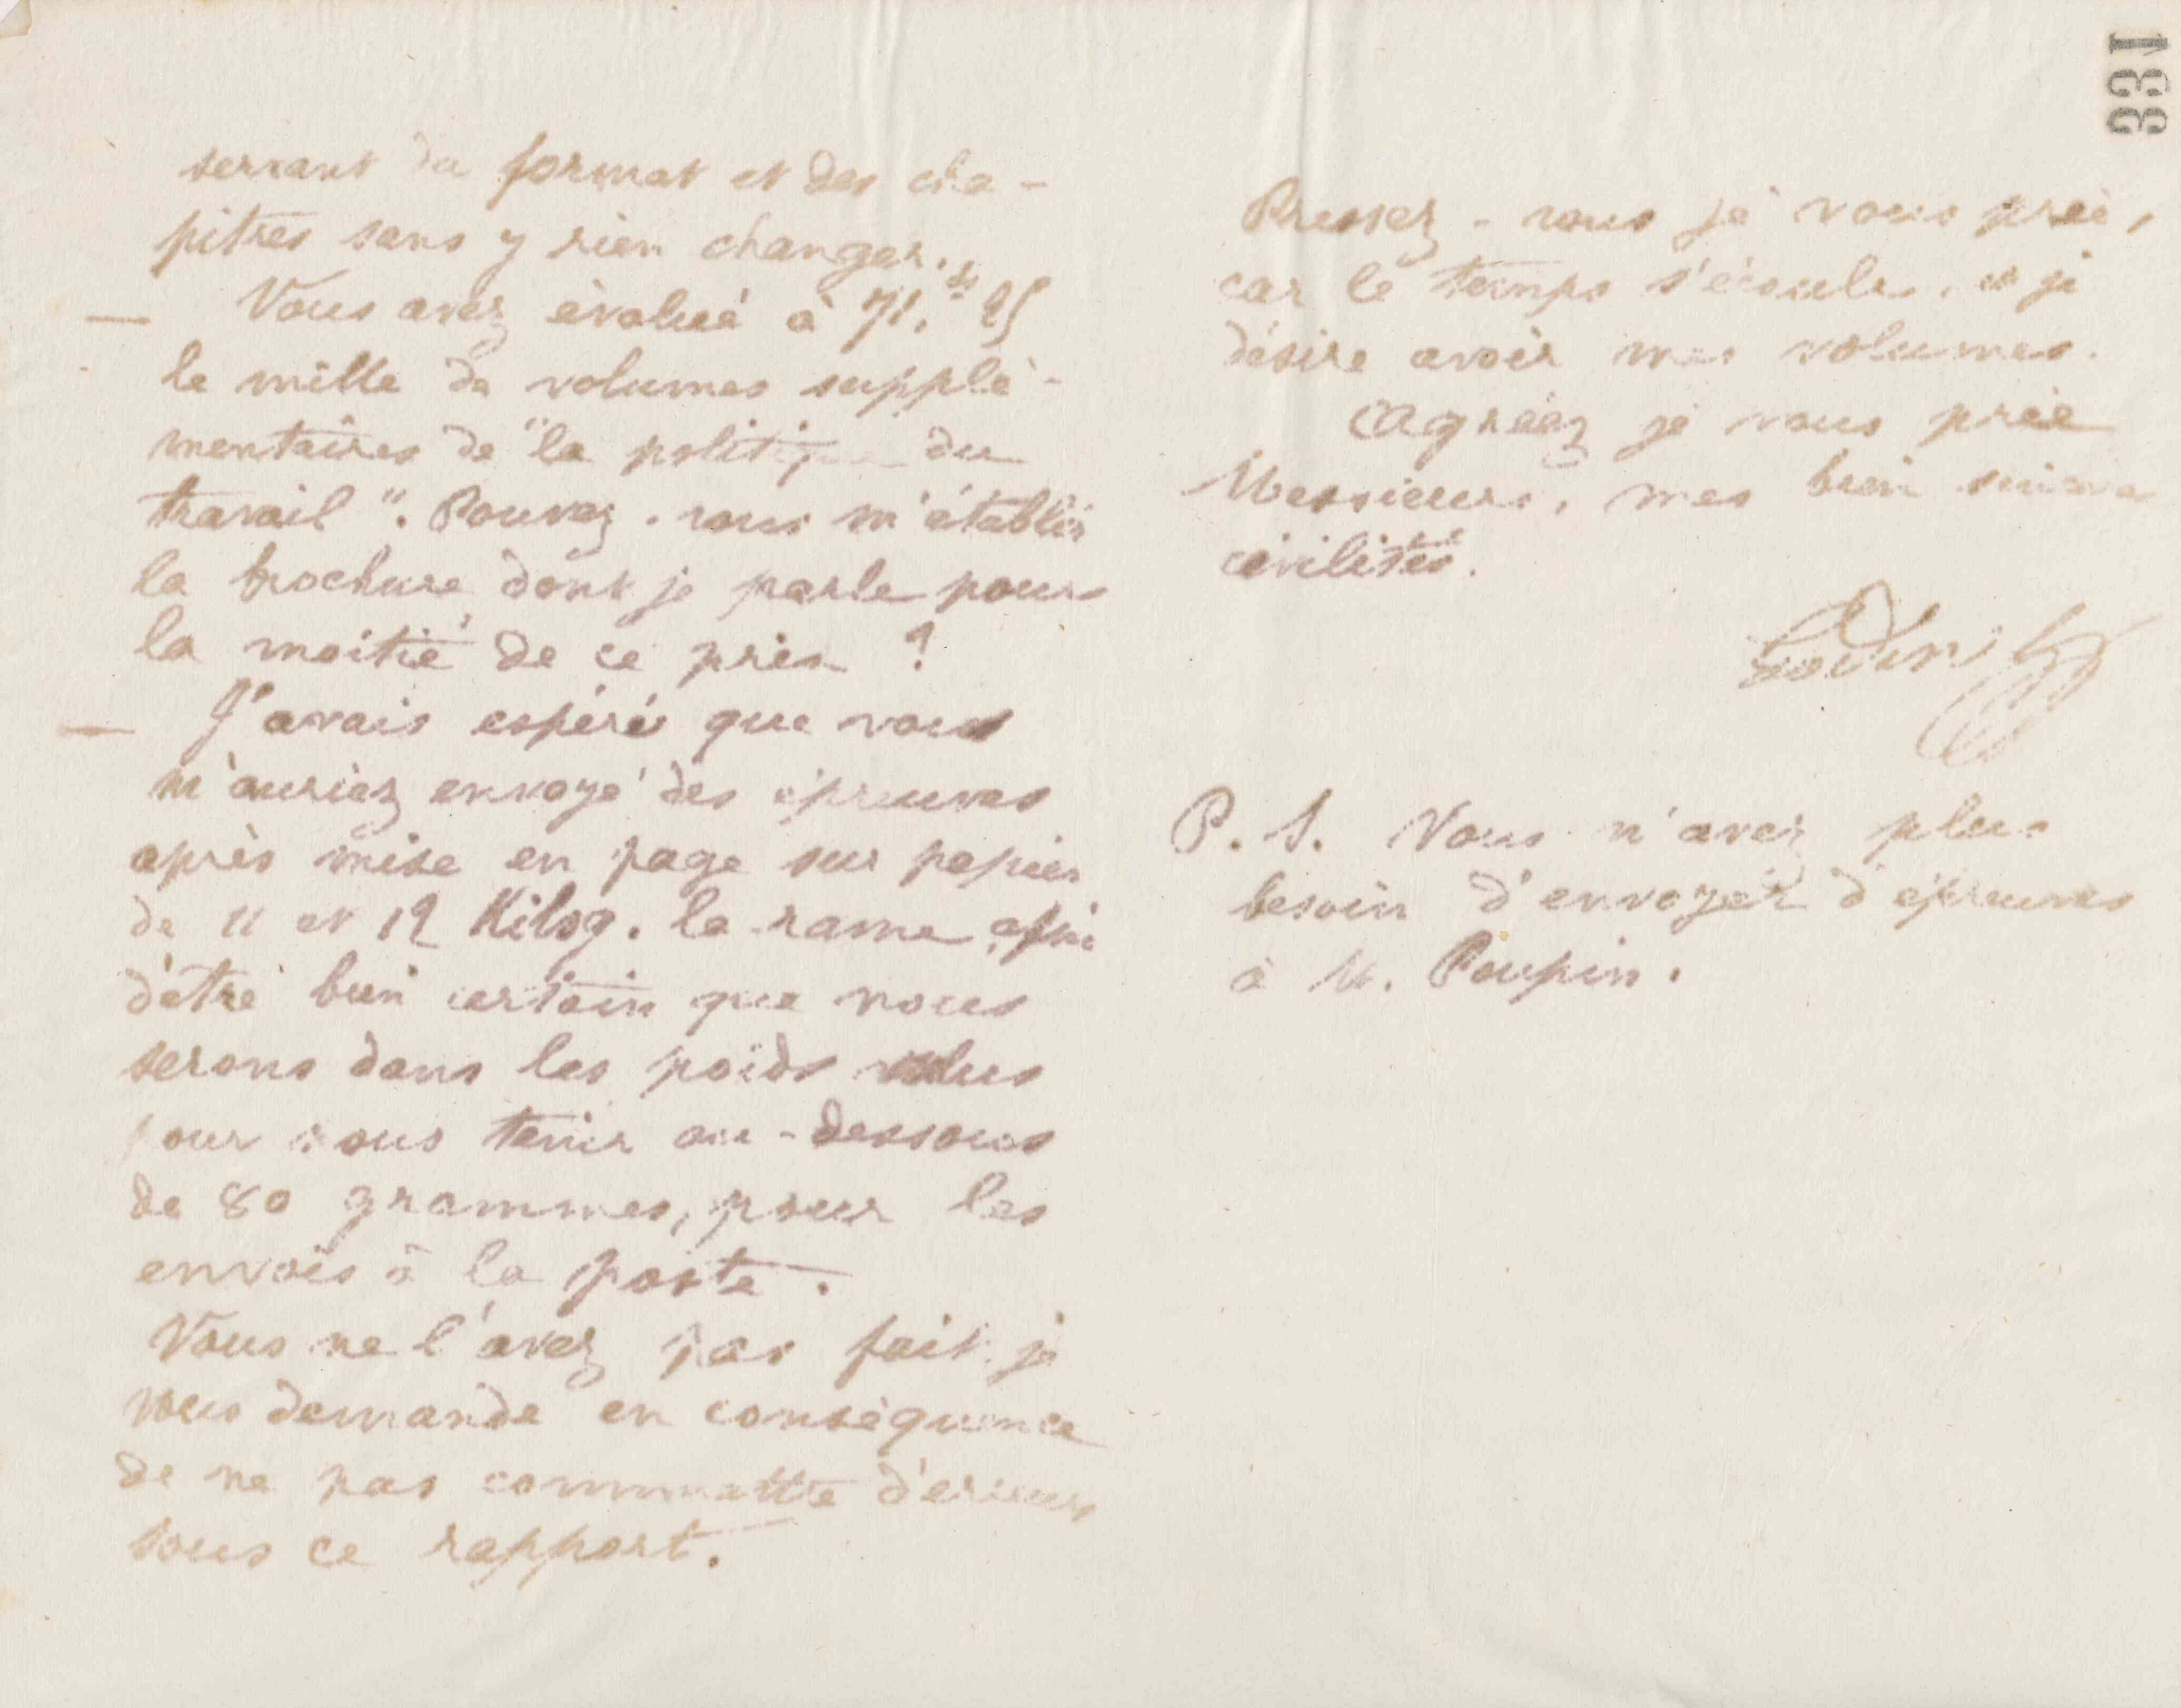 serrant du format et des cha-
pitres sans y rien changer.
— Vous avez évalué à 71.25
le mille de volumes supplé-
mentaires de "la politique du
travail". Pouvez-vous m'établir
la brochure dont je parle pour
la moitié de ce prix ?
— J'avais espéré que vous
m'auriez envoyé des épreuves
après mise en page sur papier
de 11 et 12 Kilog. la rame afin
d'être bien certain que nous
serons dans les poids
pour nous tenir au-dessous
de 80 grammes, pour les
envois à la poste.
Vous ne l'avez pas fait, je
vous demande en conséquence
de ne pas commettre d'erreur
sous ce rapport.
331
Pressez-vous je vous prie,
car le temps s'écoule, et je
désire avoir mes volumes.
Agréez je vous prie
Messieurs, mes bien
civilités.
Godin
P. S. Vous n'avez plus
besoin d'envoyer d'épreuves
à M. Poupin.